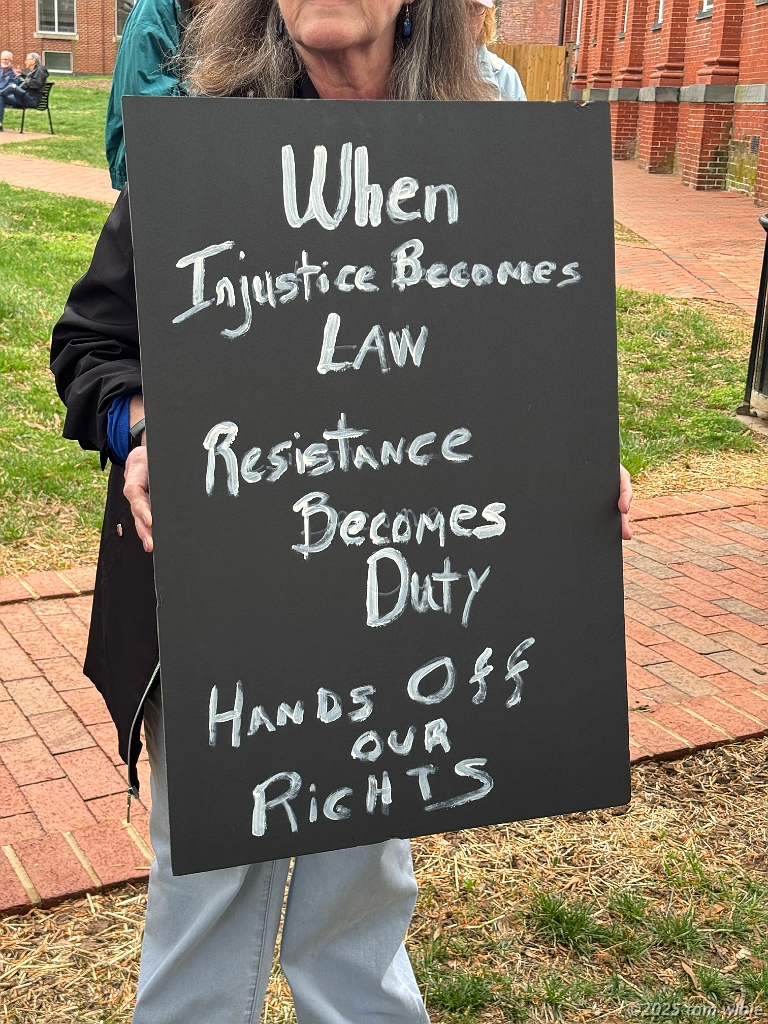 When
Injustice Becomes
LAW
Resistance
Becomes
Duty
HANDS Off
OUR
RIGHTS
©2025 tom wible